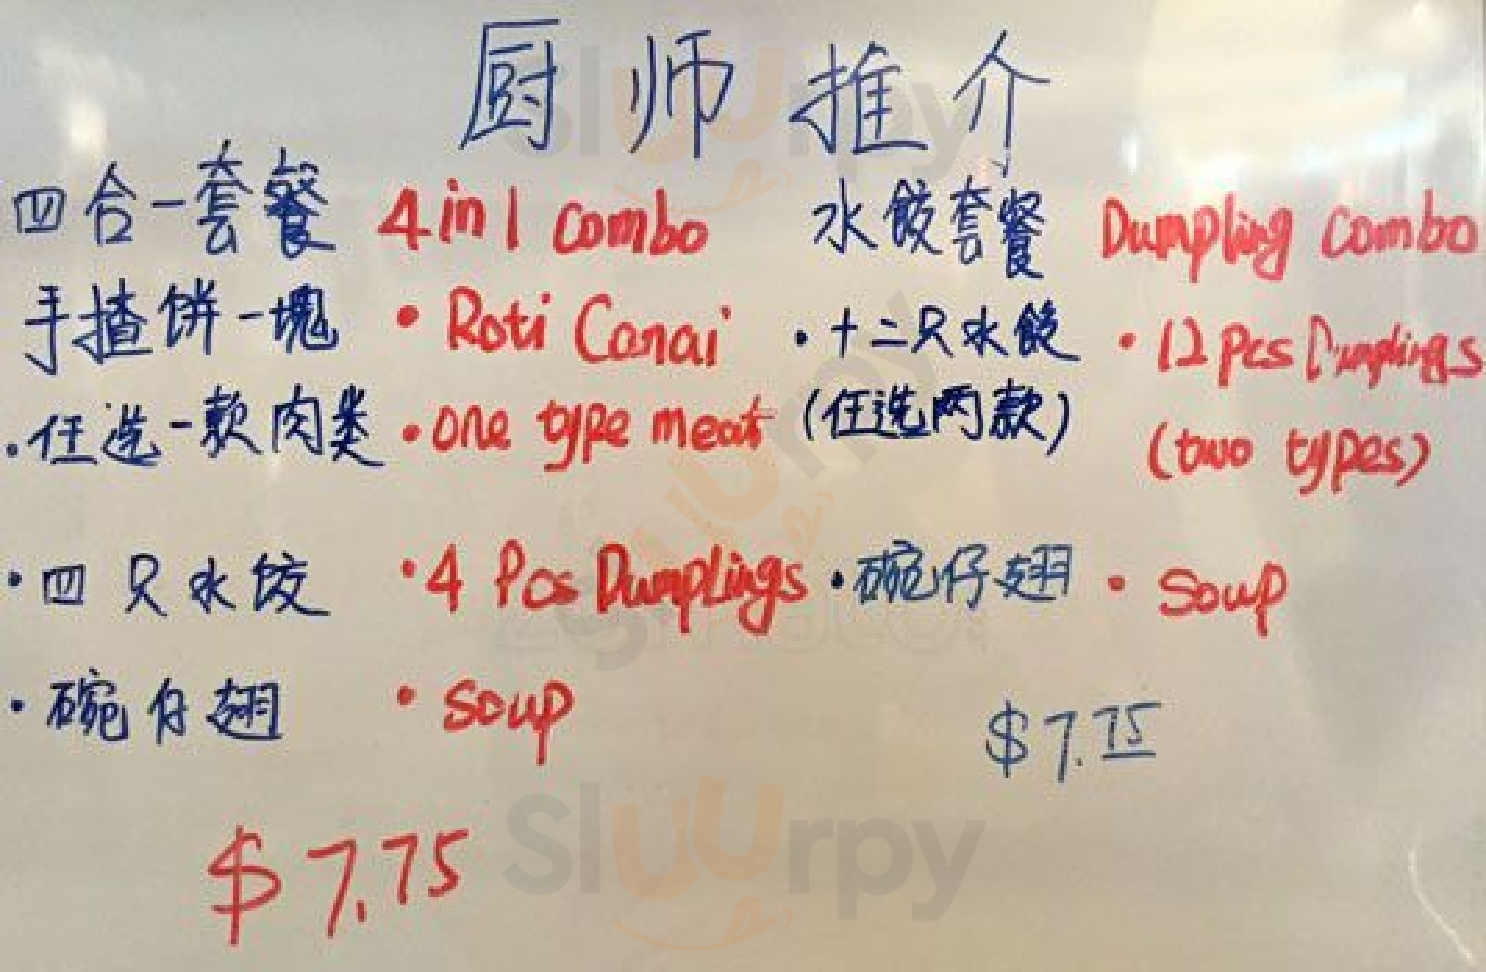 厨师推介
四合一套餐 4 in 1 combo
手揸饼一塊 • Roti Canai
• 任选一款肉类 • one type meat
• 四只水饺 • 4 Pcs Dumplings
• 碗仔翅 • soup
$7.75
水饺套餐 Dumpling combo
• 十二只水饺 • 12 pcs Dumplings
(任选两款) (two types)
• 碗仔翅 • soup
$7.75
Sluurpy
Sluurpy
Sluurpy